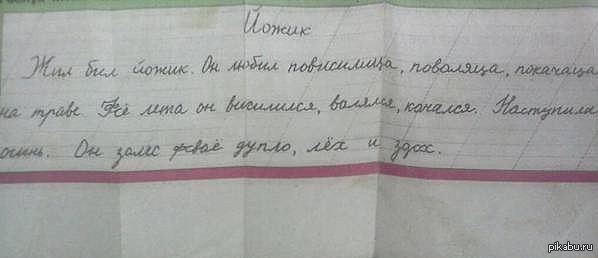 Йожик
Жил бил йожик. Он любил повисилица, поволяца, покачаца
на траве. Fсё лета он висилился, волялся, качался. Наступила
осинь. Он залес fсваё дупло, лёх и здох.
pikabu.ru